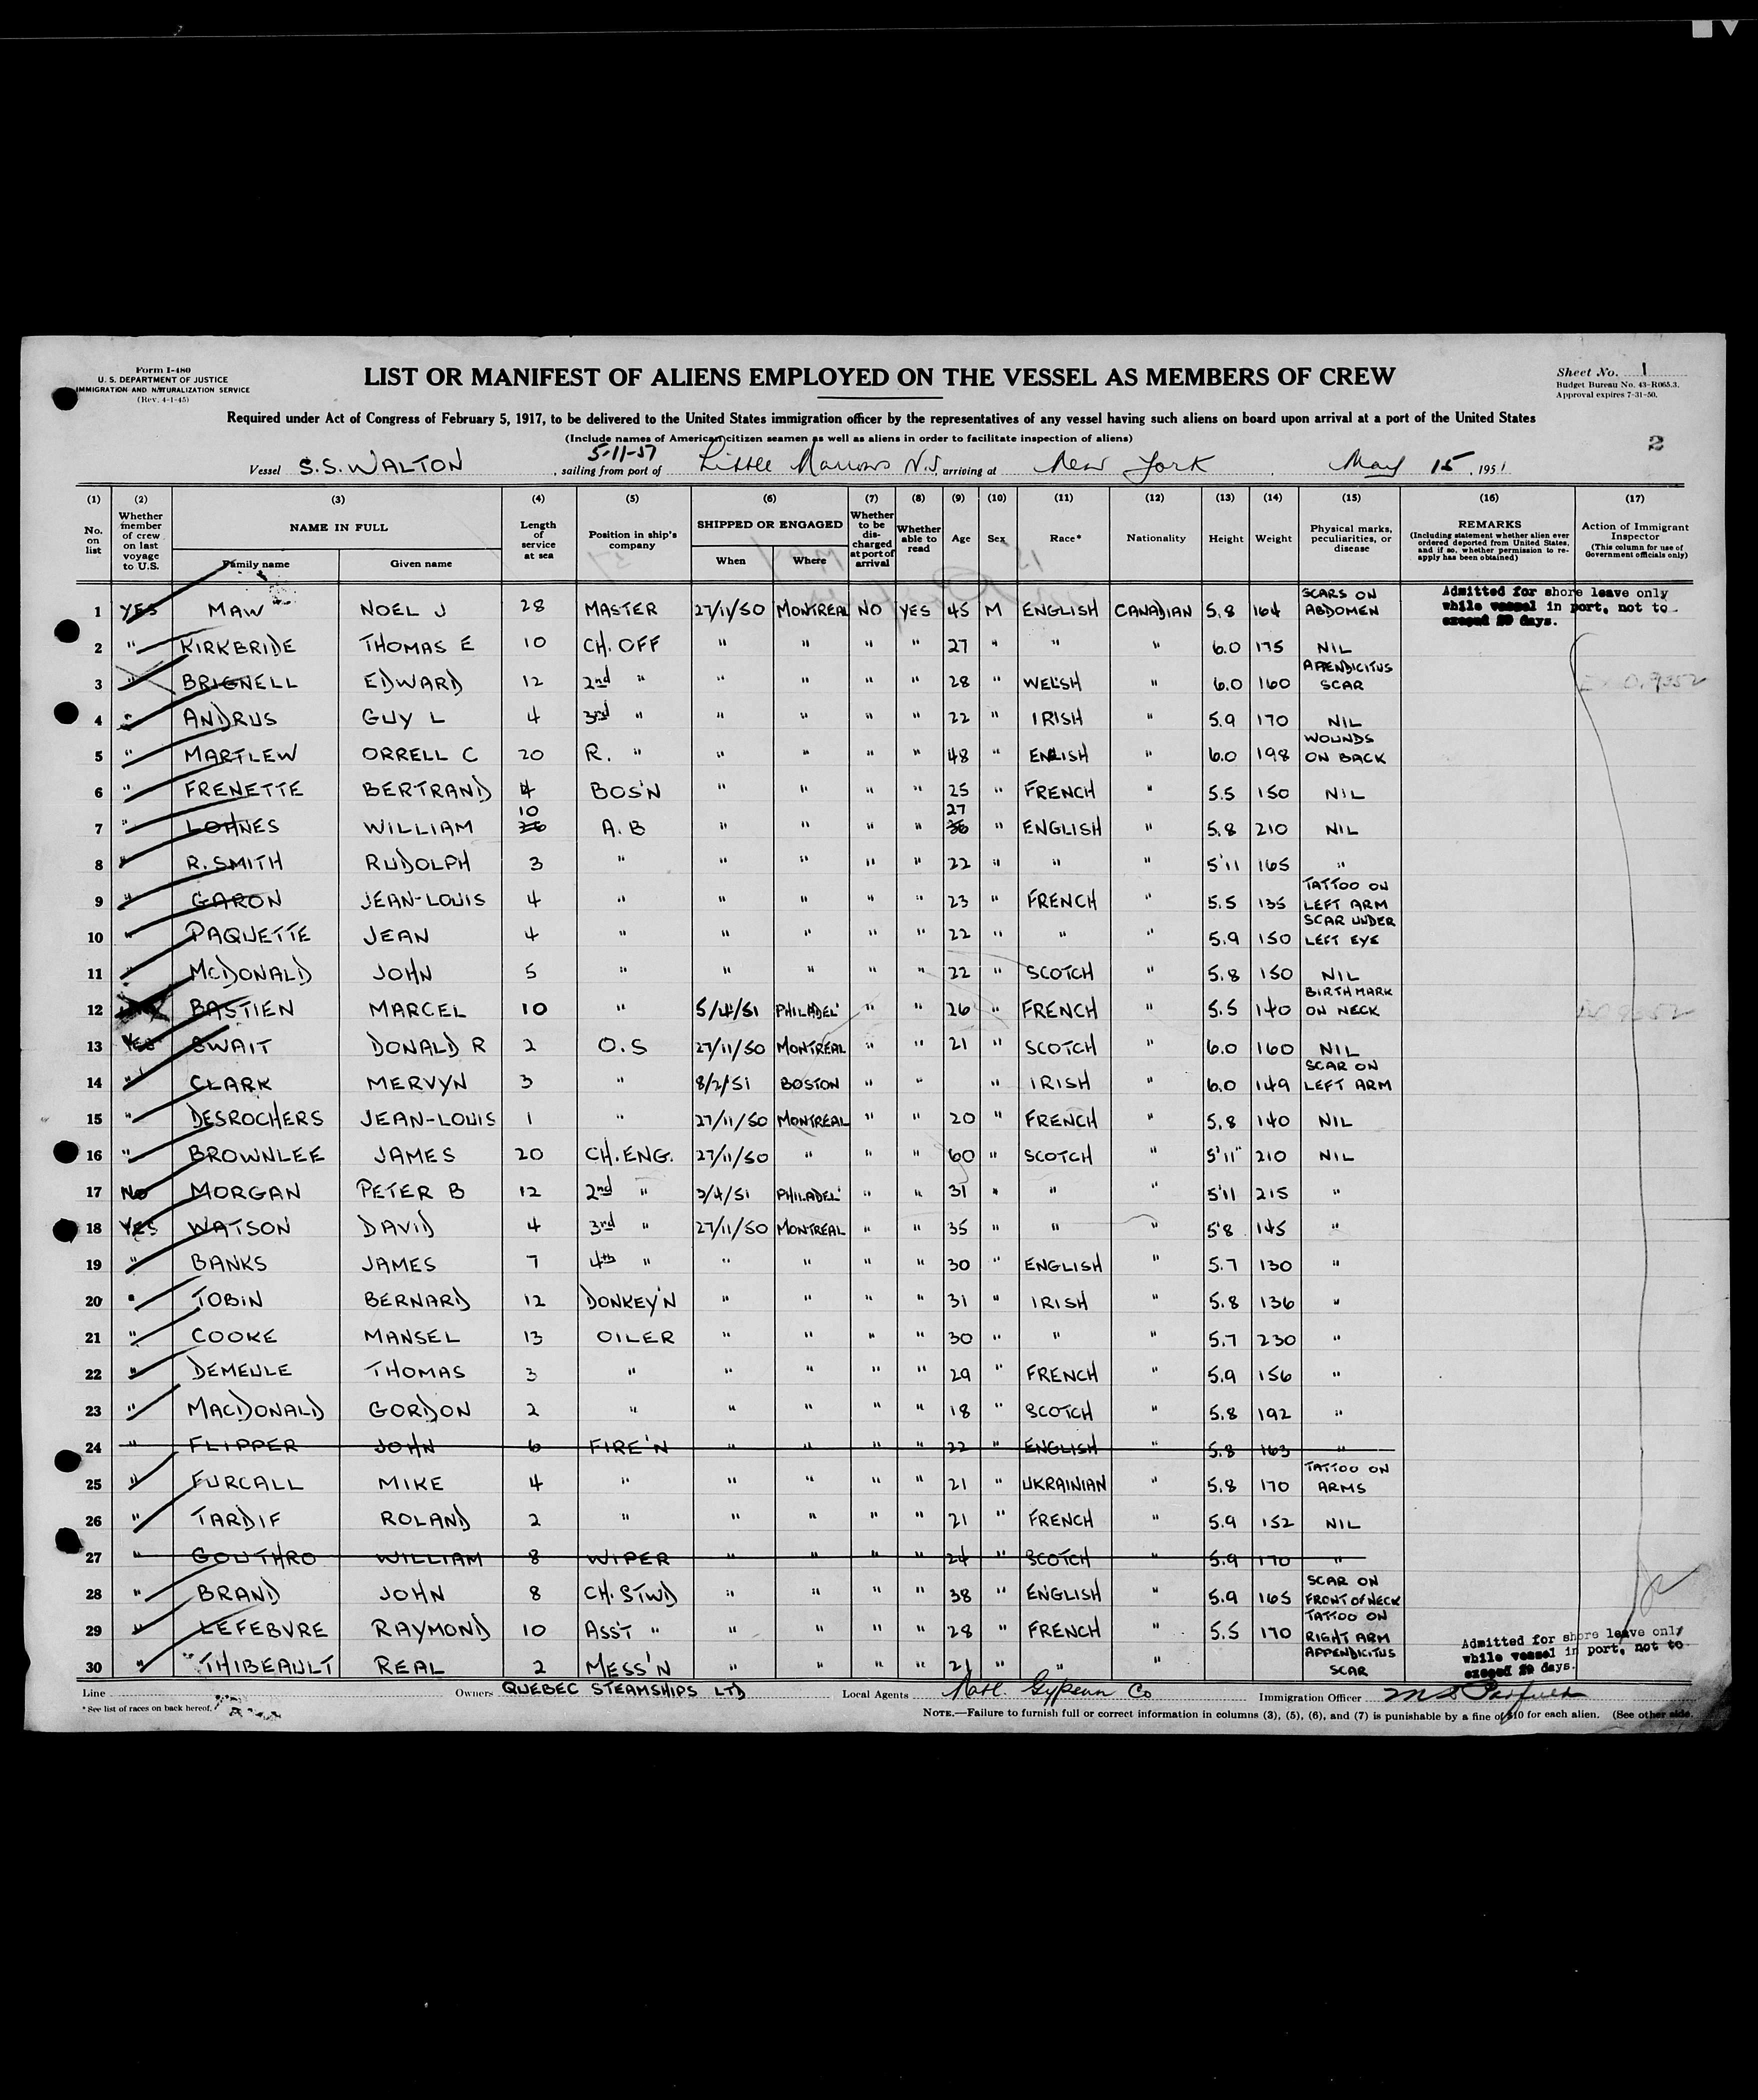 Form I-480
U. S. DEPARTMENT OF JUSTICE
IMMIGRATION AND NATURALIZATION SERVICE
(Rev. 4-1-45)
LIST OR MANIFEST OF ALIENS EMPLOYED ON THE VESSEL AS MEMBERS OF CREW
Sheet No. 1
Budget Bureau No. 43-R065.3.
Approval expires 7-31-50.
Required under Act of Congress of February 5, 1917, to be delivered to the United States immigration officer by the representatives of any vessel having such aliens on board upon arrival at a port of the United States
(Include names of American citizen seamen as well as aliens in order to facilitate inspection of aliens)
2
5-11-51
Vessel S.S. WALTON, sailing from port of Little Narrows N.S, arriving at New York, May 15, 1951
(1) (2) (3) (4) (5) (6) (7) (8) (9) (10) (11) (12) (13) (14) (15) (16) (17)
No. on list
Whether member of crew on last voyage to U.S.
NAME IN FULL
Family name
Given name
Length of service at sea
Position in ship's company
SHIPPED OR ENGAGED
When
Where
Whether to be discharged at port of arrival
Whether able to read
Age
Sex
Race*
Nationality
Height
Weight
Physical marks, peculiarities, or disease
REMARKS
(Including statement whether alien ever ordered deported from United States, and if so, whether permission to reapply has been obtained)
Action of Immigrant Inspector
(This column for use of Government officials only)
1 YES MAW NOEL J 28 MASTER 27/11/50 MONTREAL NO YES 45 M ENGLISH CANADIAN 5.8 164 SCARS ON ABDOMEN
Admitted for shore leave only
while vessel in port, not to
exceed 29 days.
2 " KIRKBRIDE THOMAS E 10 CH. OFF " " " " 27 " " " 6.0 175 NIL
3 " BRIGNELL EDWARD 12 2nd " " " " " 28 " WELSH " 6.0 160 APENDICITUS SCAR
4 " ANDRUS GUY L 4 3rd " " " " " 22 " IRISH " 5.9 170 NIL
5 " MARTLEW ORRELL C 20 R. " " " " " 48 " ENLISH " 6.0 198 WOUNDS ON BACK
6 " FRENETTE BERTRAND 4 BOS'N " " " " 25 " FRENCH " 5.5 150 NIL
7 " LOHNES WILLIAM 10 A.B " " " " 27 36 " ENGLISH " 5.8 210 NIL
8 " R. SMITH RUDOLPH 3 " " " " " 22 " " " 5'11 165 "
9 " GARON JEAN-LOUIS 4 " " " " " 23 " FRENCH " 5.5 135 TATTOO ON LEFT ARM
10 " PAQUETTE JEAN 4 " " " " " 22 " " " 5.9 150 SCAR UNDER LEFT EYE
11 " McDONALD JOHN 5 " " " " " 22 " SCOTCH " 5.8 150 NIL
12 BASTIEN MARCEL 10 " 5/4/51 PHILADEL' " " 26 " FRENCH " 5.5 140 BIRTHMARK ON NECK
13 YES SWAIT DONALD R 2 O.S 27/11/50 MONTREAL " " 21 " SCOTCH " 6.0 160 NIL
14 " CLARK MERVYN 3 " 8/2/51 BOSTON " " " IRISH " 6.0 149 SCAR ON LEFT ARM
15 " DESROCHERS JEAN-LOUIS 1 " 27/11/50 MONTREAL " " 20 " FRENCH " 5.8 140 NIL
16 " BROWNLEE JAMES 20 CH. ENG. 27/11/50 " " " 60 " SCOTCH " 5'11" 210 NIL
17 NO MORGAN PETER B 12 2nd " 3/4/51 PHILADEL' " " 31 " " " 5'11 215 "
18 YES WATSON DAVID 4 3rd " 27/11/50 MONTREAL " " 35 " " " 5'8 145 "
19 " BANKS JAMES 7 4th " " " " " 30 " ENGLISH " 5.7 130 "
20 " TOBIN BERNARD 12 DONKEY'N " " " " 31 " IRISH " 5.8 136 "
21 " COOKE MANSEL 13 OILER " " " " 30 " " " 5.7 230 "
22 " DEMEULE THOMAS 3 " " " " " 29 " FRENCH " 5.9 156 "
23 " MACDONALD GORDON 2 " " " " " 18 " SCOTCH " 5.8 192 "
24 " FLIPPER JOHN 6 FIRE'N " " " " 22 " ENGLISH " 5.8 163 "
25 " FURCALL MIKE 4 " " " " " 21 " UKRAINIAN " 5.8 170 TATTOO ON ARMS
26 " TARDIF ROLAND 2 " " " " " 21 " FRENCH " 5.9 152 NIL
27 " GOUTHRO WILLIAM 8 WIPER " " " " 24 " SCOTCH " 5.9 170 "
28 " BRAND JOHN 8 CH. STWD " " " " 38 " ENGLISH " 5.9 165 SCAR ON FRONT OF NECK
29 " LEFEBVRE RAYMOND 10 ASS'T " " " " " 28 " FRENCH " 5.5 170 TATTOO ON RIGHT ARM
30 " THIBEAULT REAL 2 MESS'N " " " " 21 " " " APPENDICITUS SCAR
Admitted for shore leave only
while vessel in port, not to
exceed 29 days.
Line
Owners QUEBEC STEAMSHIPS LTD
Local Agents Natl. Gypsum Co
Immigration Officer
* See list of races on back hereof.
NOTE.—Failure to furnish full or correct information in columns (3), (5), (6), and (7) is punishable by a fine of $10 for each alien. (See other side.